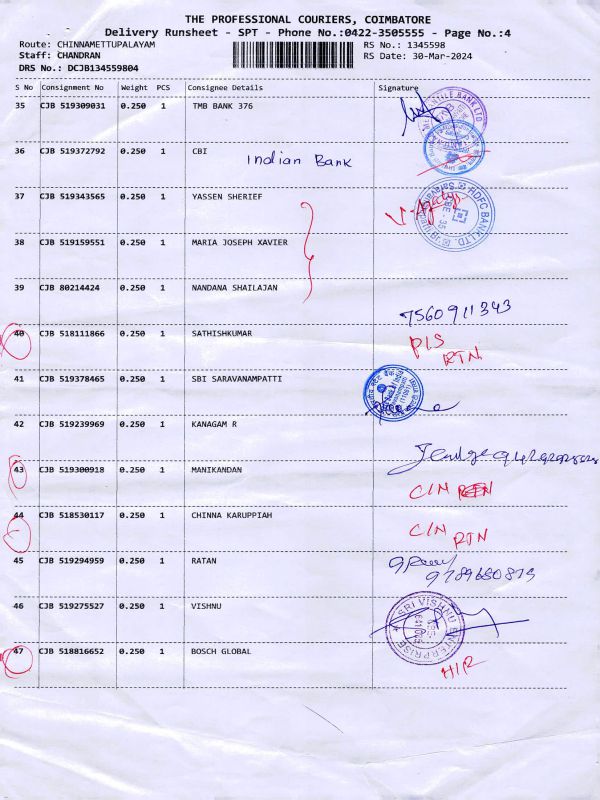 THE PROFESSIONAL COURIERS, COIMBATORE
Delivery Runsheet - SPT - Phone No.:0422-3505555 - Page No.:4
Route: CHINNAMETTUPALAYAM RS No.: 1345598
Staff: CHANDRAN RS Date: 30-Mar-2024
DRS No.: DCJB134559804
S No Consignment No Weight PCS Consignee Details Signature
35 CJB 519309031 0.250 1 TMB BANK 376
36 CJB 519372792 0.250 1 CBI
Indian Bank
37 CJB 519343565 0.250 1 YASSEN SHERIEF
HDFC BANK LTD.
38 CJB 519159551 0.250 1 MARIA JOSEPH XAVIER
39 CJB 80214424 0.250 1 NANDANA SHAILAJAN
7560911343
40 CJB 518111866 0.250 1 SATHISHKUMAR
P/S
RTN
41 CJB 519378465 0.250 1 SBI SARAVANAMPATTI
42 CJB 519239969 0.250 1 KANAGAM R
43 CJB 519300918 0.250 1 MANIKANDAN
C/N RTN
44 CJB 518530117 0.250 1 CHINNA KARUPPIAH
C/N
RTN
45 CJB 519294959 0.250 1 RATAN
46 CJB 519275527 0.250 1 VISHNU
SRI VISHNU ENTERPRISE
47 CJB 518816652 0.250 1 BOSCH GLOBAL
H/R